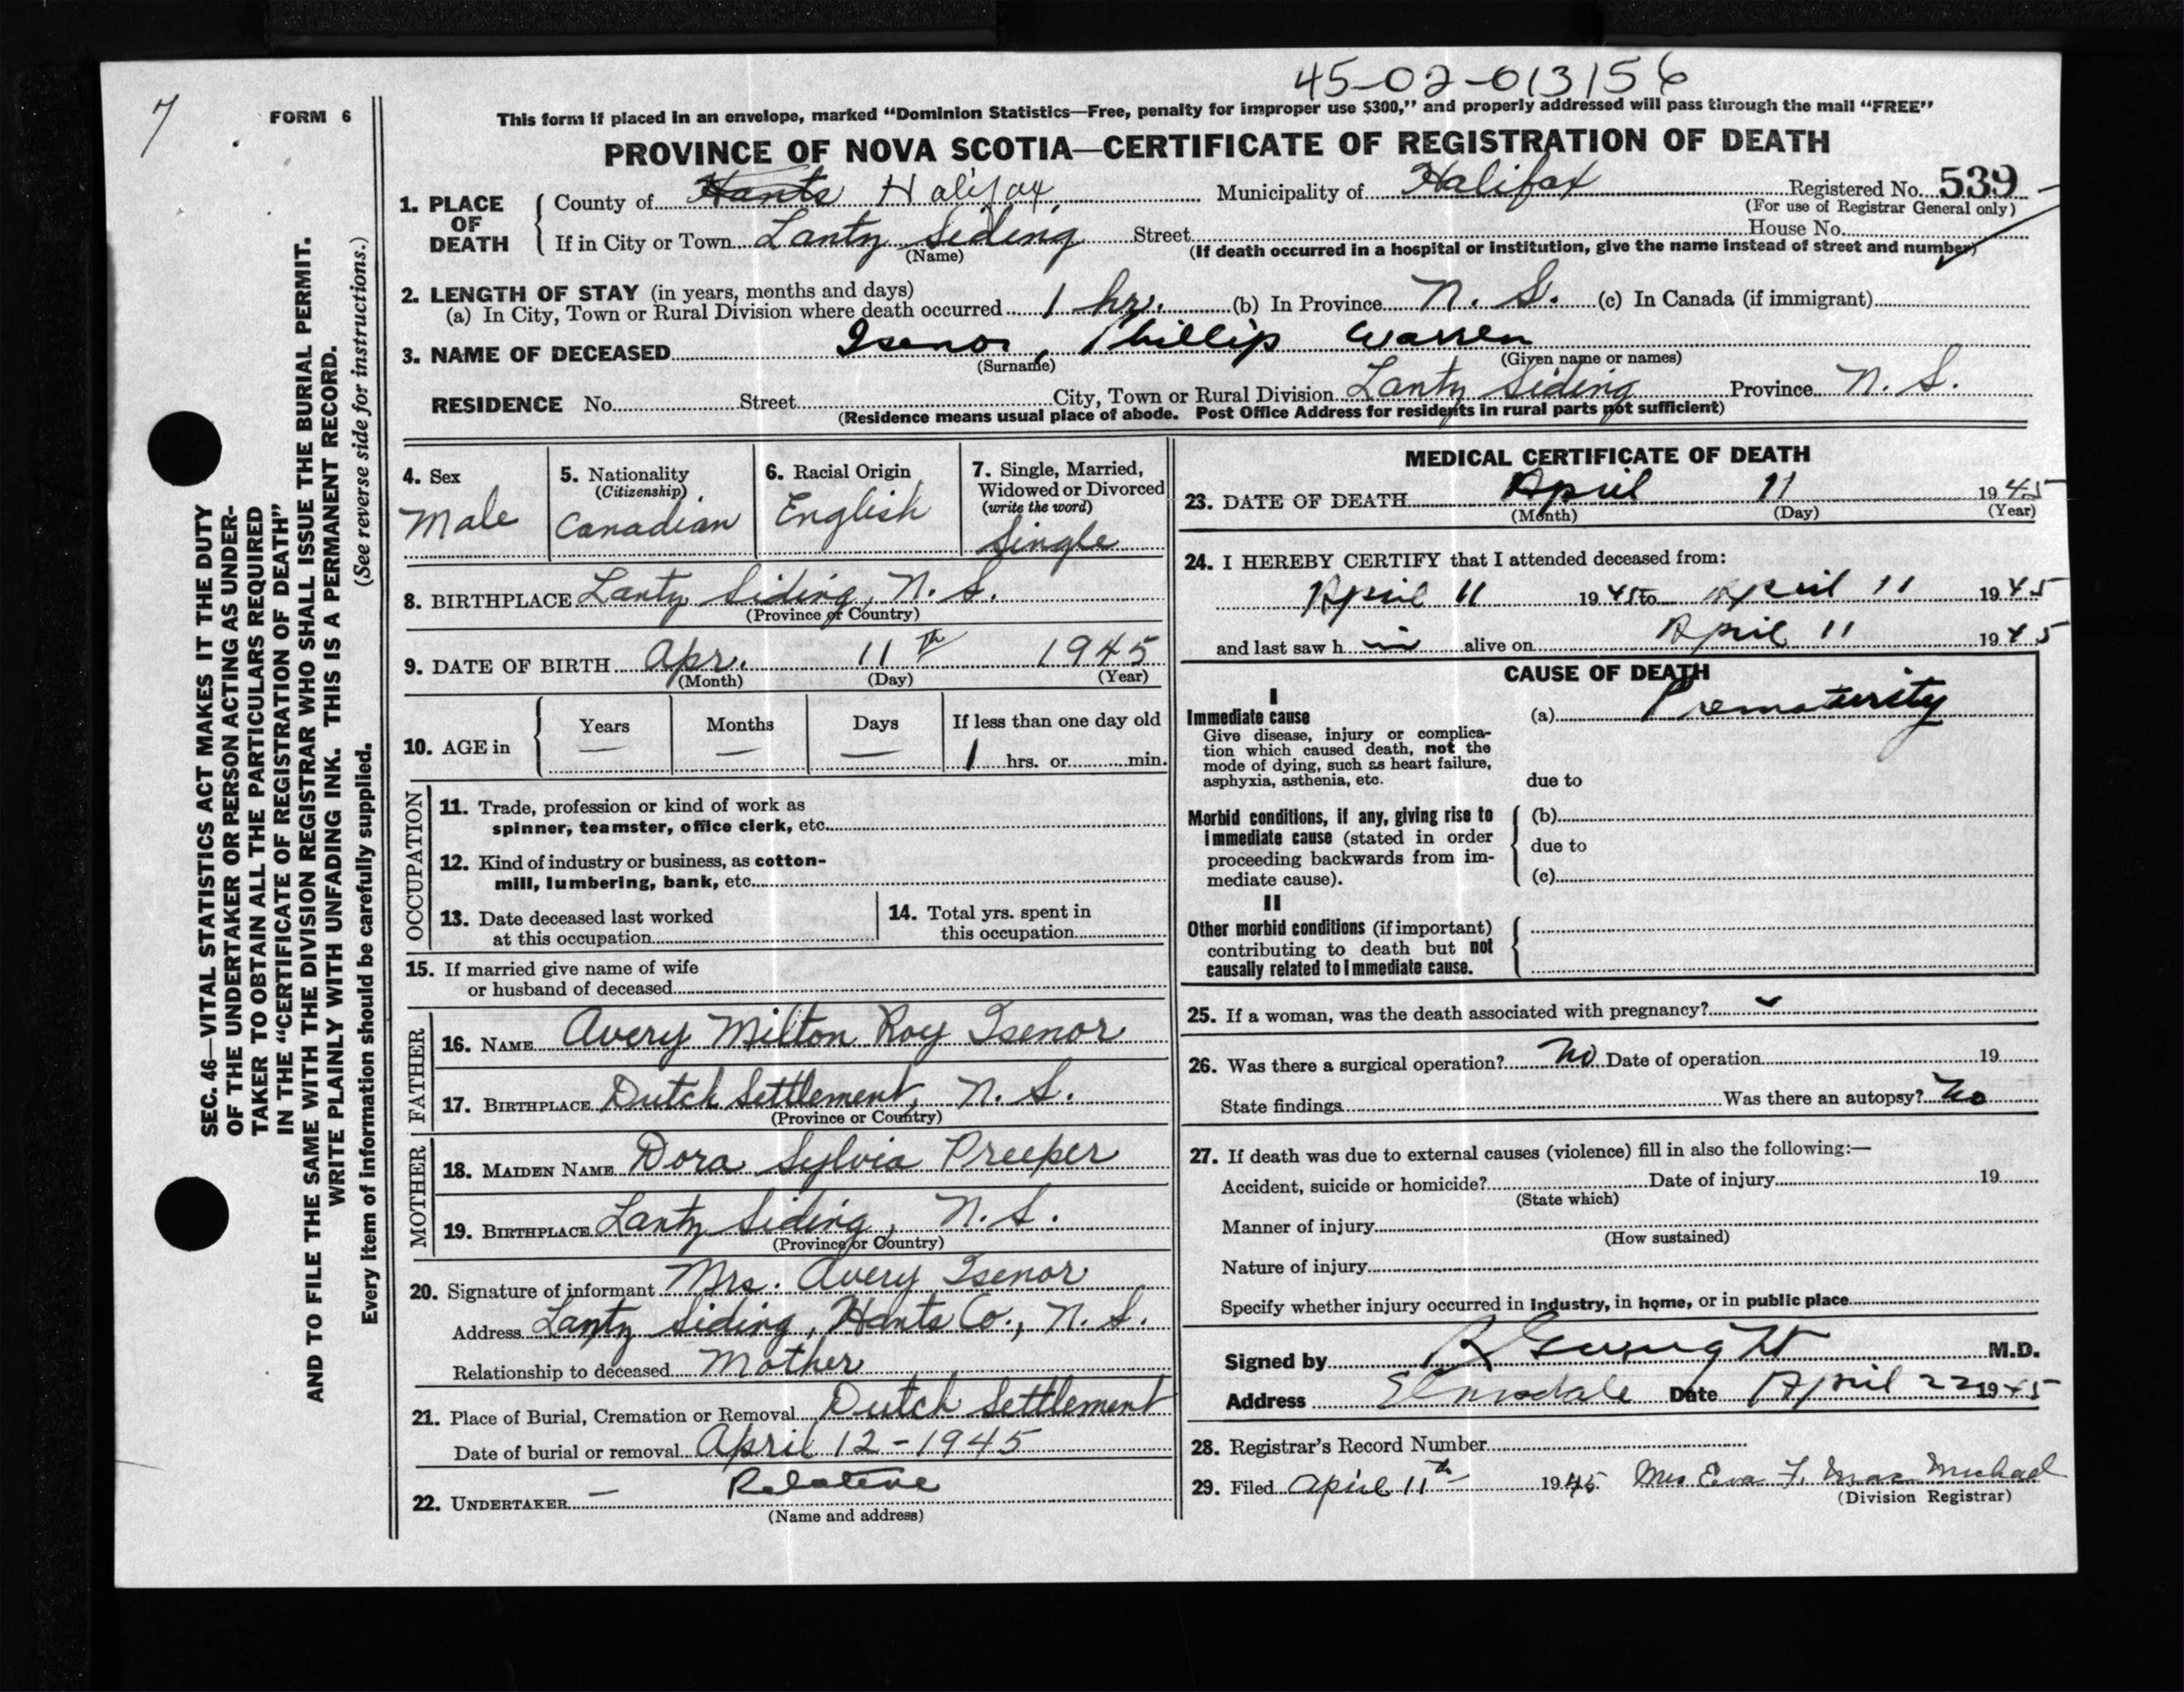 45-02-013156
7
FORM 6
This form if placed in an envelope, marked "Dominion Statistics—Free, penalty for improper use $300," and properly addressed will pass through the mail "FREE"
PROVINCE OF NOVA SCOTIA—CERTIFICATE OF REGISTRATION OF DEATH
1. PLACE OF DEATH
County of Hants Halifax Municipality of Halifax Registered No. 539
(For use of Registrar General only)
If in City or Town Lantz Siding Street House No.
(Name) (If death occurred in a hospital or institution, give the name instead of street and number)
2. LENGTH OF STAY (in years, months and days)
(a) In City, Town or Rural Division where death occurred 1 hr. (b) In Province N. S. (c) In Canada (if immigrant)
3. NAME OF DECEASED Isenor, Phillip Warren
(Surname) (Given name or names)
RESIDENCE No. Street City, Town or Rural Division Lantz Siding Province N. S.
(Residence means usual place of abode. Post Office Address for residents in rural parts not sufficient)
4. Sex
Male
5. Nationality
(Citizenship)
Canadian
6. Racial Origin
English
7. Single, Married,
Widowed or Divorced
(write the word)
Single
8. BIRTHPLACE Lantz Siding, N. S.
(Province or Country)
9. DATE OF BIRTH Apr. 11th 1945
(Month) (Day) (Year)
10. AGE in
Years Months Days If less than one day old
— — — 1 hrs. or min.
OCCUPATION
11. Trade, profession or kind of work as
spinner, teamster, office clerk, etc.
12. Kind of industry or business, as cotton-
mill, lumbering, bank, etc.
13. Date deceased last worked
at this occupation
14. Total yrs. spent in
this occupation
15. If married give name of wife
or husband of deceased
FATHER
16. NAME Avery Milton Roy Isenor
17. BIRTHPLACE Dutch Settlement, N. S.
(Province or Country)
MOTHER
18. MAIDEN NAME Dora Sylvia Preeper
19. BIRTHPLACE Lantz Siding, N. S.
(Province or Country)
20. Signature of informant Mrs. Avery Isenor
Address Lantz Siding, Hants Co., N. S.
Relationship to deceased Mother
21. Place of Burial, Cremation or Removal Dutch Settlement
Date of burial or removal April 12-1945
22. UNDERTAKER — Relative
(Name and address)
MEDICAL CERTIFICATE OF DEATH
23. DATE OF DEATH April 11 1945
(Month) (Day) (Year)
24. I HEREBY CERTIFY that I attended deceased from:
April 11 1945 to April 11 1945
and last saw h im alive on April 11 1945
CAUSE OF DEATH
I
Immediate cause
Give disease, injury or complica-
tion which caused death, not the
mode of dying, such as heart failure,
asphyxia, asthenia, etc.
(a) Prematurity
due to
Morbid conditions, if any, giving rise to
immediate cause (stated in order
proceeding backwards from im-
mediate cause).
(b)
due to
(c)
II
Other morbid conditions (if important)
contributing to death but not
causally related to immediate cause.
25. If a woman, was the death associated with pregnancy?
26. Was there a surgical operation? No Date of operation 19
State findings Was there an autopsy? No
27. If death was due to external causes (violence) fill in also the following:—
Accident, suicide or homicide? Date of injury 19
(State which)
Manner of injury
(How sustained)
Nature of injury
Specify whether injury occurred in industry, in home, or in public place
Signed by M.D.
Address Elmsdale Date April 22 1945
28. Registrar's Record Number
29. Filed April 11th 1945 Mrs Eva F. MacMichael
(Division Registrar)
SEC. 46—VITAL STATISTICS ACT MAKES IT THE DUTY
OF THE UNDERTAKER OR PERSON ACTING AS UNDER-
TAKER TO OBTAIN ALL THE PARTICULARS REQUIRED
IN THE "CERTIFICATE OF REGISTRATION OF DEATH"
AND TO FILE THE SAME WITH THE DIVISION REGISTRAR WHO SHALL ISSUE THE BURIAL PERMIT.
WRITE PLAINLY WITH UNFADING INK. THIS IS A PERMANENT RECORD.
Every item of information should be carefully supplied. (See reverse side for instructions.)